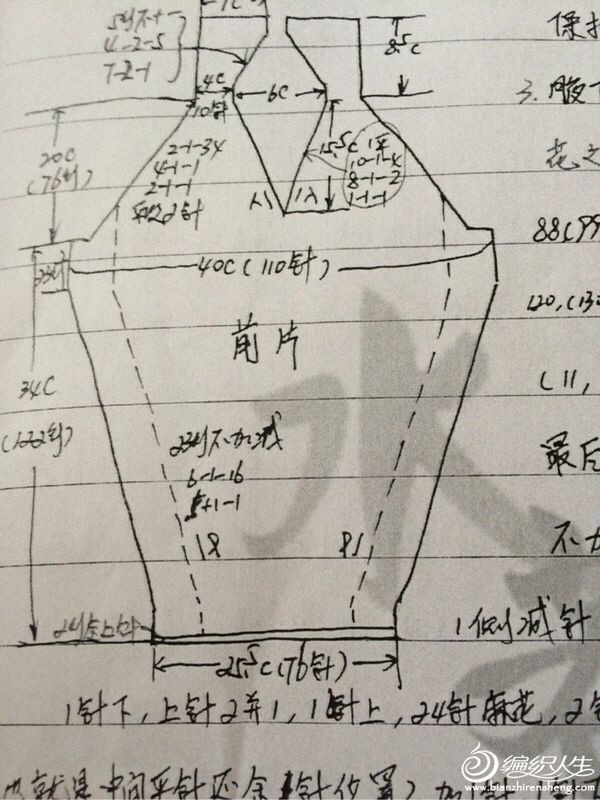 5行不+-
4-2-5
7-2-1
4C
10针
6C
8.5C
15.5C
1平
10-1-4
8-1-2
1-1-1
20C
(76行)
2-1-34
4-1-1
2-1-1
平收2针
入1
1入
40C(110针)
前片
34C
(122行)
23行不加减
6-1-16
5+1-1
18
81
25.5C(76针)
保护
3. 腹
花之
88(99
120,(130
(11,
最后
不加
1侧减针
1针下,上针2并1,1针上,24针麻花,2针
也就是中间平针还余
编织人生
www.bianzhirensheng.com